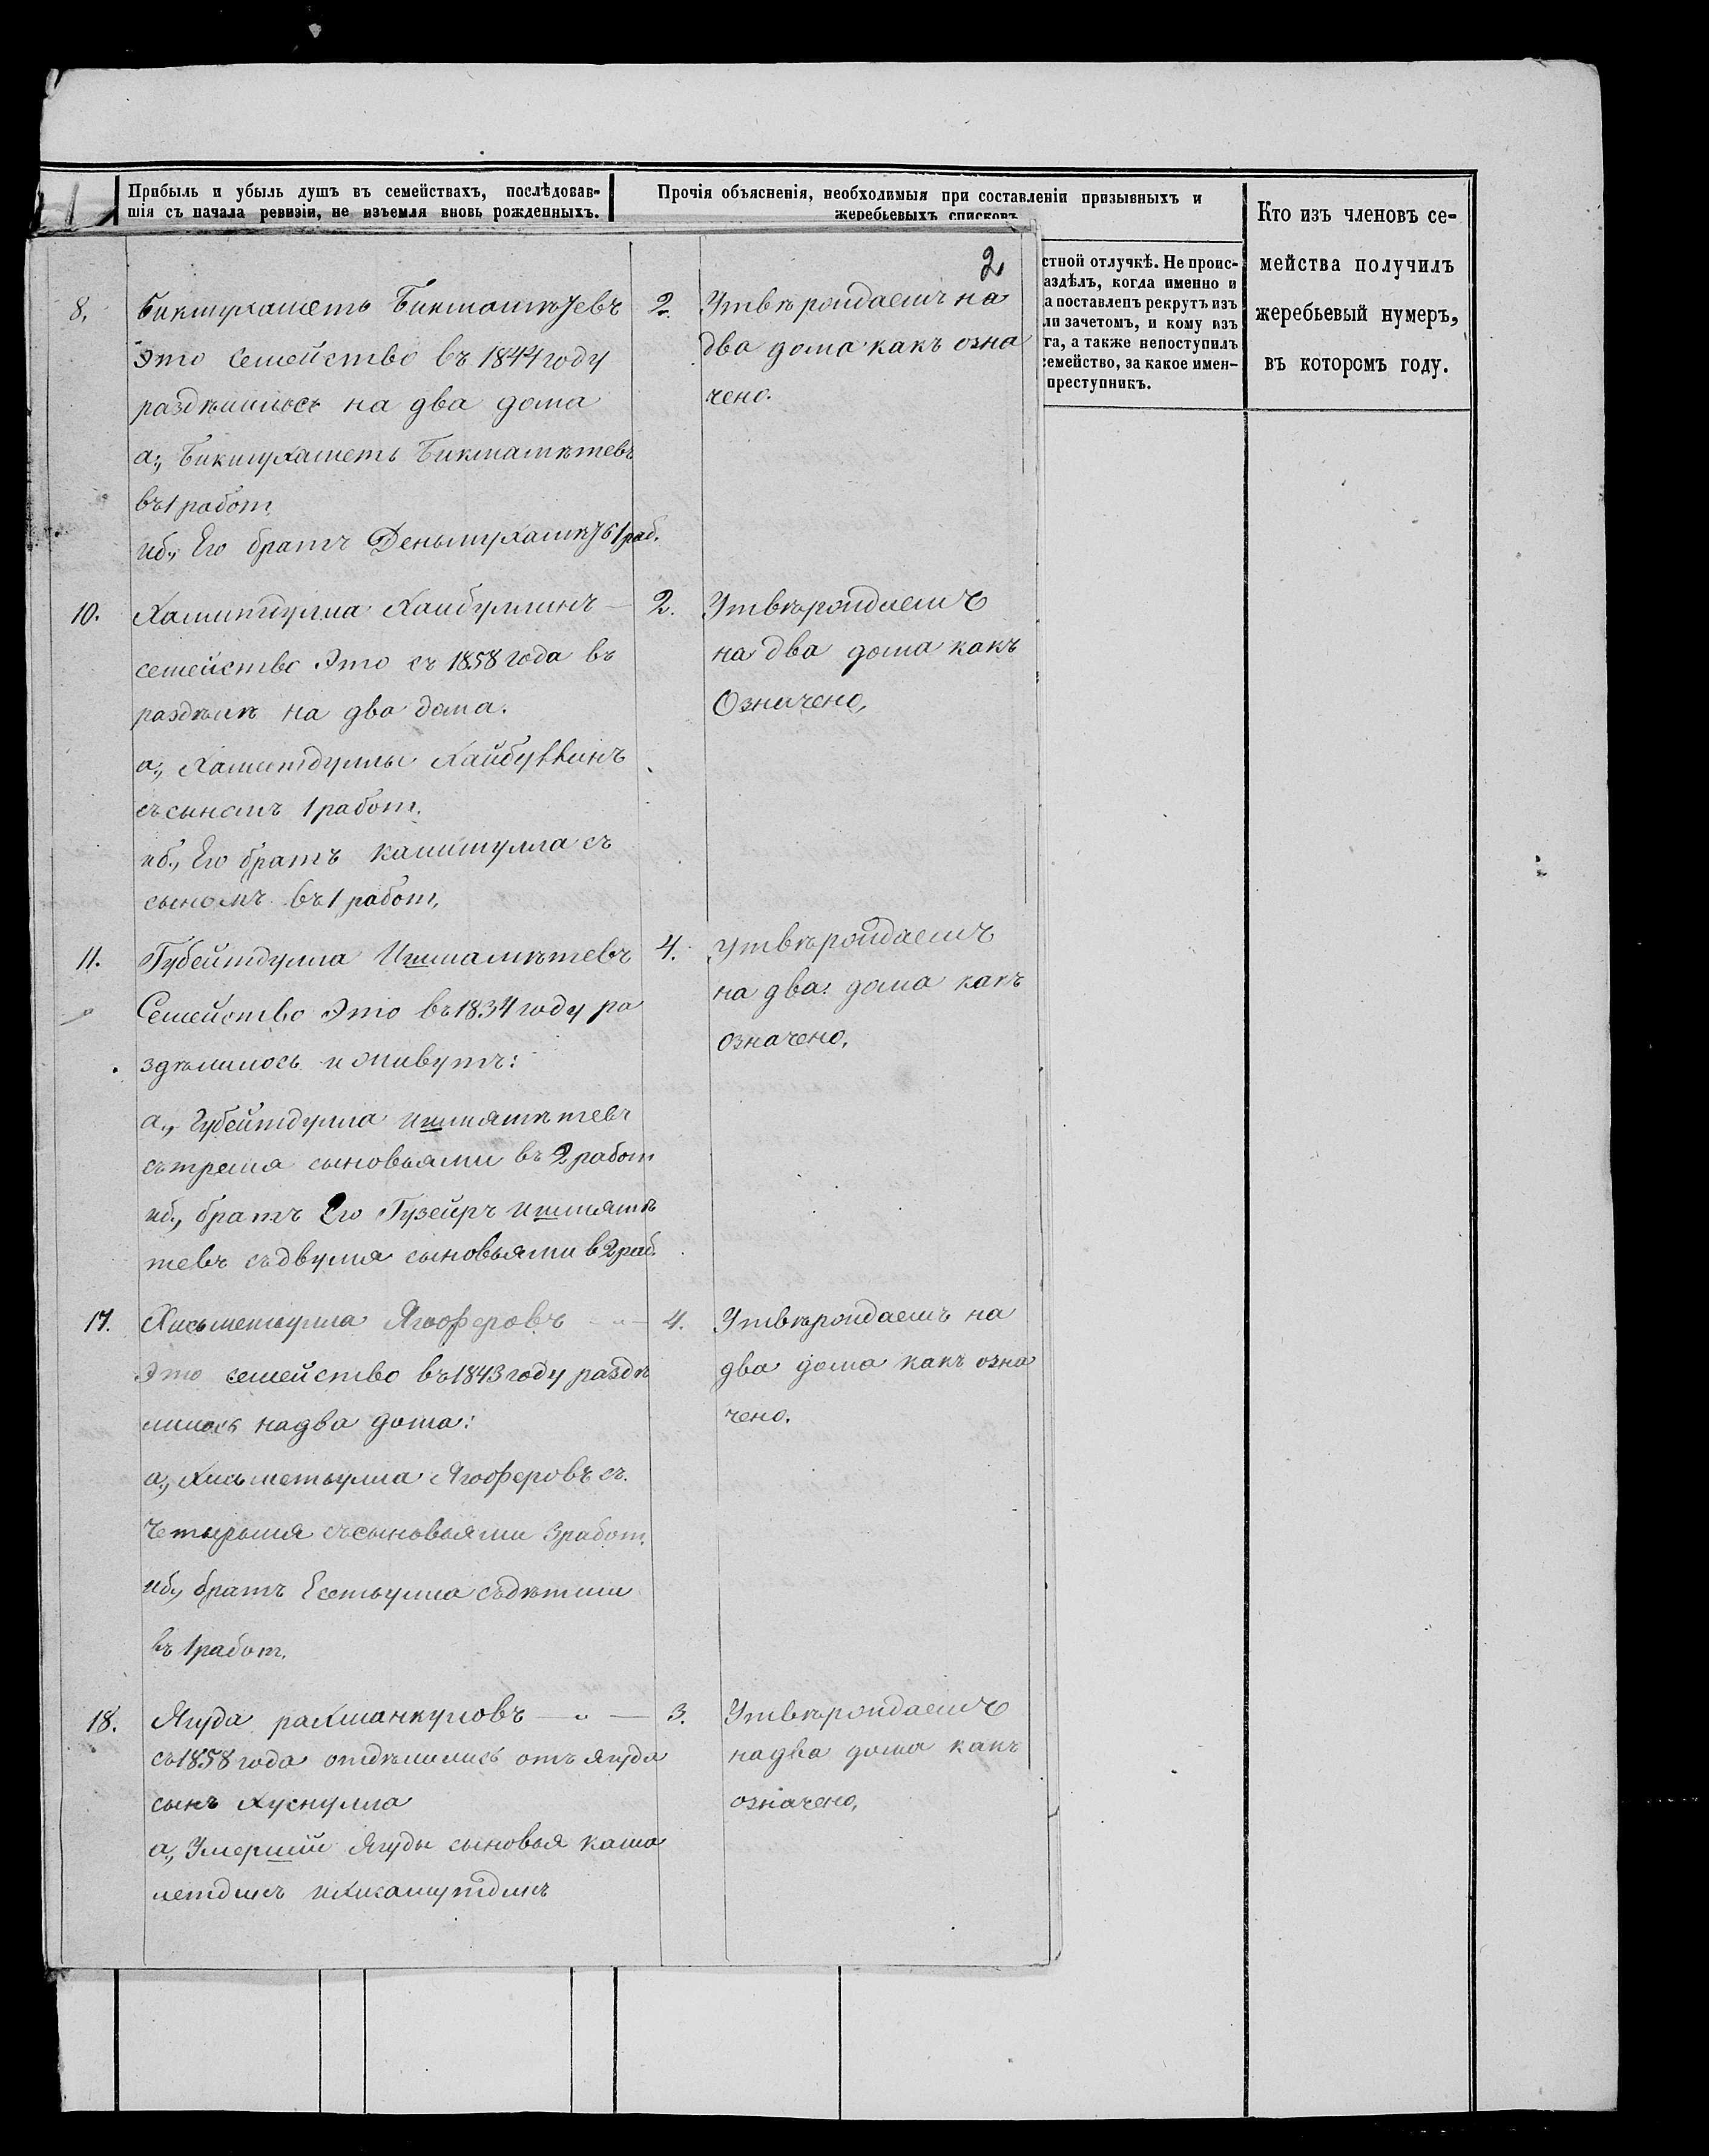 Прибыль и убыль душъ въ семействахъ, послѣдовав-
шія съ начала ревизіи, не изъемля вновь рожденныхъ.
Прочія объясненія, необходимыя при составленіи призывныхъ и
жеребьевыхъ списковъ
стной отлучкѣ. Не проис-
аздѣлъ, когда именно и
а поставленъ рекрутъ изъ
ли зачетомъ, и кому изъ
га, а также непоступилъ
семейство, за какое имен-
преступникъ.
Кто изъ членовъ се-
мейства получилъ
жеребьевый нумеръ,
въ которомъ году.
2
8. Бикмухаметь Бикмаметевъ 2. Утвѣрждаемъ на
Это семейство въ 1844 году два дома какъ озна
раздѣлилось на два дома чено.
а., Бикмухаметь Бикмамѣтевъ
въ 1 работ.
иб., Его братъ Деньмухамѣт в 1 раб.
10. Хамитдулла Хайбуллинъ 2. Утвѣрждаемъ
семейство Это съ 1858 года въ на два дома какъ
раздѣлѣ на два дома. Означено,
а., Хамитдуллы Хайбуллинъ
съ сыномъ 1 работ.
иб., Его братъ калимулла съ
сыномъ въ 1 работ,
11. Губейтдулла Ишмамѣтевъ 4. утвѣрждаемъ
Семейство Это въ 1834 году ра на два дома какъ
здѣлилось и живутъ: означено,
а., Губейтдулла ишмямѣтевъ
съ тремя сыновьями въ 2 работ
иб., братъ Его Гузейръ ишмямѣ
тевъ съ двумя сыновьями в 2 раб.
17. Хисьметьулла Ягоферовъ 4. Утвѣрждаемъ на
Это семейство въ 1843 году раздѣ два дома какъ озна
лилось на два дома: чено.
а., Хисьметьулла Ягоферовъ съ
Четырьмя съ сыновьями 3 работ.
иб., братъ Есетьулла съ дѣтьми
въ 1 работ.
18. Ягуда рахманкуловъ 3. Утвѣрждаемъ
съ 1858 года отдѣлились отъ ягуда на два дома какъ
сынъ Хуснулла означено,
а., Умершій Ягуды сыновья кама
летдинъ и